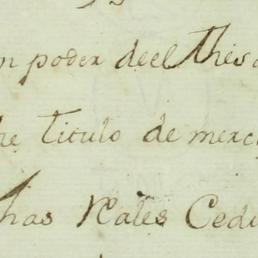 n poder deel thes
he titulo de merc
has Reales Cedu